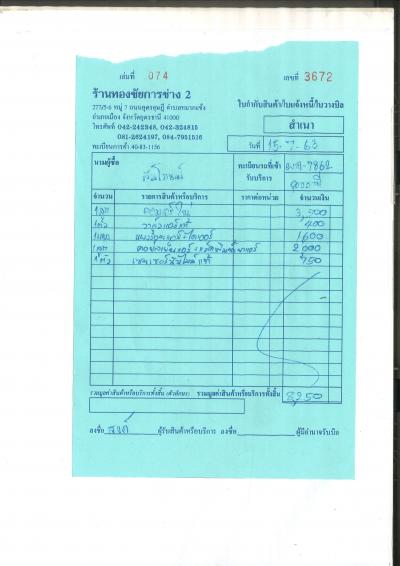 เล่มที่ 074 เลขที่ 3672
ร้านทองชัยการช่าง 2
277/5-6 หมู่ 7 ถนนอุดรดุษฎี ตำบลหมากแข้ง
อำเภอเมือง จังหวัดอุดรธานี 41000
โทรศัพท์ 042-242348, 042-324815
081-2624197, 084-7951516
ทะเบียนการค้า 40-83-1156
ใบกำกับสินค้า/ใบแจ้งหนี้/ใบวางบิล
สำเนา
วันที่ 15-7-63
นามผู้ซื้อ
ทะเบียนรถที่เข้ารับบริการ 7862
จำนวน รายการสินค้าหรือบริการ ราคาต่อหน่วย จำนวนเงิน
3,500
1 ตัว วาล์วแอร์แท้ 400
1600
2,000
1 ตัว 750
รวมมูลค่าสินค้าหรือบริการทั้งสิ้น (ตัวอักษร) รวมมูลค่าสินค้าหรือบริการทั้งสิ้น 8,250
ลงชื่อ ผู้รับสินค้าหรือบริการ ลงชื่อ ผู้มีอำนาจรับบิล